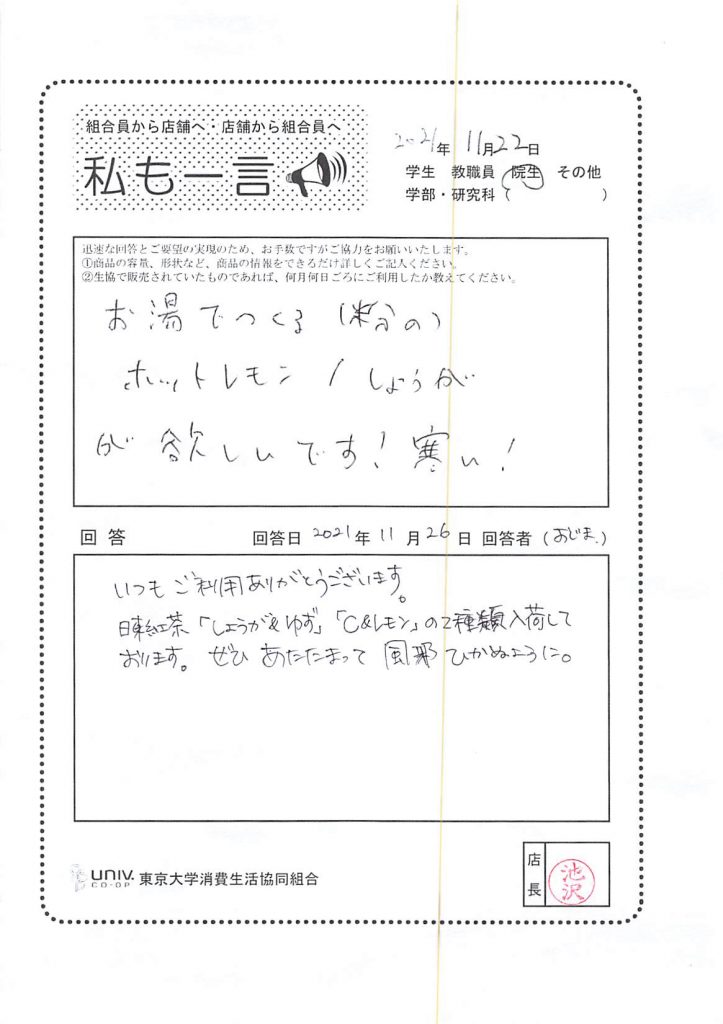 組合員から店舗へ・店舗から組合員へ
私も一言
2021年 11月22日
学生 教職員 院生 その他
学部・研究科( )
迅速な回答とご要望の実現のため、お手数ですがご協力をお願いいたします。
①商品の容量、形状など、商品の情報をできるだけ詳しくご記入ください。
②生協で販売されていたものであれば、何月何日ごろにご利用したか教えてください。
お湯でつくる (粉の)
ホットレモン / しょうが
が 欲しいです! 寒い!
回答 回答日 2021年 11月 26日 回答者 (おじま)
いつもご利用ありがとうございます。
日東紅茶「しょうが&ゆず」「C&レモン」の2種類入荷して
おります。ぜひ あたたまって 風邪ひかぬように。
UNIV. CO-OP 東京大学消費生活協同組合
店長 池沢